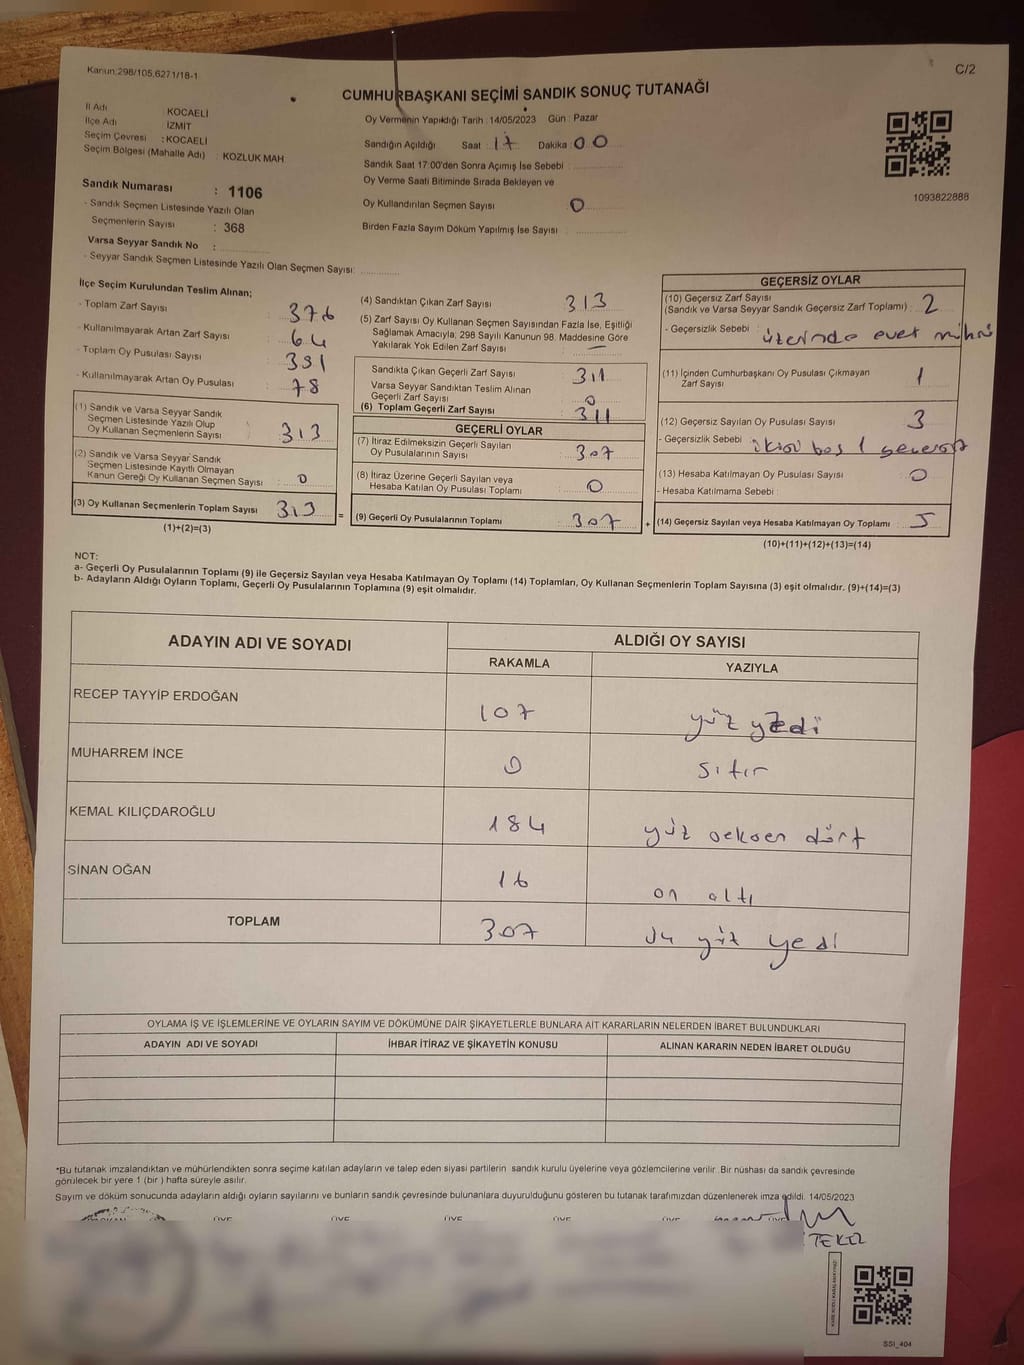 Kanun:298/105,6271/18-1
C/2
CUMHURBAŞKANI SEÇİMİ SANDIK SONUÇ TUTANAĞI
İl Adı : KOCAELİ
İlçe Adı : İZMİT
Seçim Çevresi : KOCAELİ
Seçim Bölgesi (Mahalle Adı) : KOZLUK MAH
Sandık Numarası : 1106
- Sandık Seçmen Listesinde Yazılı Olan
Seçmenlerin Sayısı : 368
Varsa Seyyar Sandık No :
- Seyyar Sandık Seçmen Listesinde Yazılı Olan Seçmen Sayısı:
Oy Vermenin Yapıldığı Tarih : 14/05/2023 Gün : Pazar
Sandığın Açıldığı Saat : 17 Dakika : 00
Sandık Saat 17:00'den Sonra Açımış İse Sebebi :
Oy Verme Saati Bitiminde Sırada Bekleyen ve
Oy Kullandırılan Seçmen Sayısı : 0
Birden Fazla Sayım Döküm Yapılmış İse Sayısı :
1093822888
İlçe Seçim Kurulundan Teslim Alınan;
- Toplam Zarf Sayısı : 376
- Kullanılmayarak Artan Zarf Sayısı : 64
- Toplam Oy Pusulası Sayısı : 391
- Kullanılmayarak Artan Oy Pusulası : 78
(1) Sandık ve Varsa Seyyar Sandık
Seçmen Listesinde Yazılı Olup
Oy Kullanan Seçmenlerin Sayısı : 313
(2) Sandık ve Varsa Seyyar Sandık
Seçmen Listesinde Kayıtlı Olmayan
Kanun Gereği Oy Kullanan Seçmen Sayısı : 0
(3) Oy Kullanan Seçmenlerin Toplam Sayısı : 313
(1)+(2)=(3)
(4) Sandıktan Çıkan Zarf Sayısı : 313
(5) Zarf Sayısı Oy Kullanan Seçmen Sayısından Fazla İse, Eşitliği
Sağlamak Amacıyla; 298 Sayılı Kanunun 98. Maddesine Göre
Yakılarak Yok Edilen Zarf Sayısı : —
Sandıkta Çıkan Geçerli Zarf Sayısı : 311
Varsa Seyyar Sandıktan Teslim Alınan
Geçerli Zarf Sayısı : 0
(6) Toplam Geçerli Zarf Sayısı : 311
GEÇERLİ OYLAR
(7) İtiraz Edilmeksizin Geçerli Sayılan
Oy Pusulalarının Sayısı : 307
(8) İtiraz Üzerine Geçerli Sayılan veya
Hesaba Katılan Oy Pusulası Toplamı : 0
= (9) Geçerli Oy Pusulalarının Toplamı : 307
GEÇERSİZ OYLAR
(10) Geçersiz Zarf Sayısı
(Sandık ve Varsa Seyyar Sandık Geçersiz Zarf Toplamı) : 2
- Geçersizlik Sebebi : üzerinde evet mührü
(11) İçinden Cumhurbaşkanı Oy Pusulası Çıkmayan
Zarf Sayısı : 1
(12) Geçersiz Sayılan Oy Pusulası Sayısı : 3
- Geçersizlik Sebebi : ikisi boş 1 geçersiz
(13) Hesaba Katılmayan Oy Pusulası Sayısı : 0
- Hesaba Katılmama Sebebi :
+ (14) Geçersiz Sayılan veya Hesaba Katılmayan Oy Toplamı : 5
(10)+(11)+(12)+(13)=(14)
NOT:
a- Geçerli Oy Pusulalarının Toplamı (9) ile Geçersiz Sayılan veya Hesaba Katılmayan Oy Toplamı (14) Toplamları, Oy Kullanan Seçmenlerin Toplam Sayısına (3) eşit olmalıdır. (9)+(14)=(3)
b- Adayların Aldığı Oyların Toplamı, Geçerli Oy Pusulalarının Toplamına (9) eşit olmalıdır.
ADAYIN ADI VE SOYADI ALDIĞI OY SAYISI
RAKAMLA YAZIYLA
RECEP TAYYİP ERDOĞAN 107 yüz yedi
MUHARREM İNCE 0 sıfır
KEMAL KILIÇDAROĞLU 184 yüz seksen dört
SİNAN OĞAN 16 on altı
TOPLAM 307 üç yüz yedi
OYLAMA İŞ VE İŞLEMLERİNE VE OYLARIN SAYIM VE DÖKÜMÜNE DAİR ŞİKAYETLERLE BUNLARA AİT KARARLARIN NELERDEN İBARET BULUNDUKLARI
ADAYIN ADI VE SOYADI İHBAR İTİRAZ VE ŞİKAYETİN KONUSU ALINAN KARARIN NEDEN İBARET OLDUĞU
*Bu tutanak imzalandıktan ve mühürlendikten sonra seçime katılan adayların ve talep eden siyasi partilerin sandık kurulu üyelerine veya gözlemcilerine verilir. Bir nüshası da sandık çevresinde
görülecek bir yere 1 (bir ) hafta süreyle asılır.
Sayım ve döküm sonucunda adayların aldığı oyların sayılarını ve bunların sandık çevresinde bulunanlara duyurulduğunu gösteren bu tutanak tarafımızdan düzenlenerek imza edildi. 14/05/2023
ÜYE ÜYE ÜYE ÜYE ÜYE ÜYE
SSİ_404